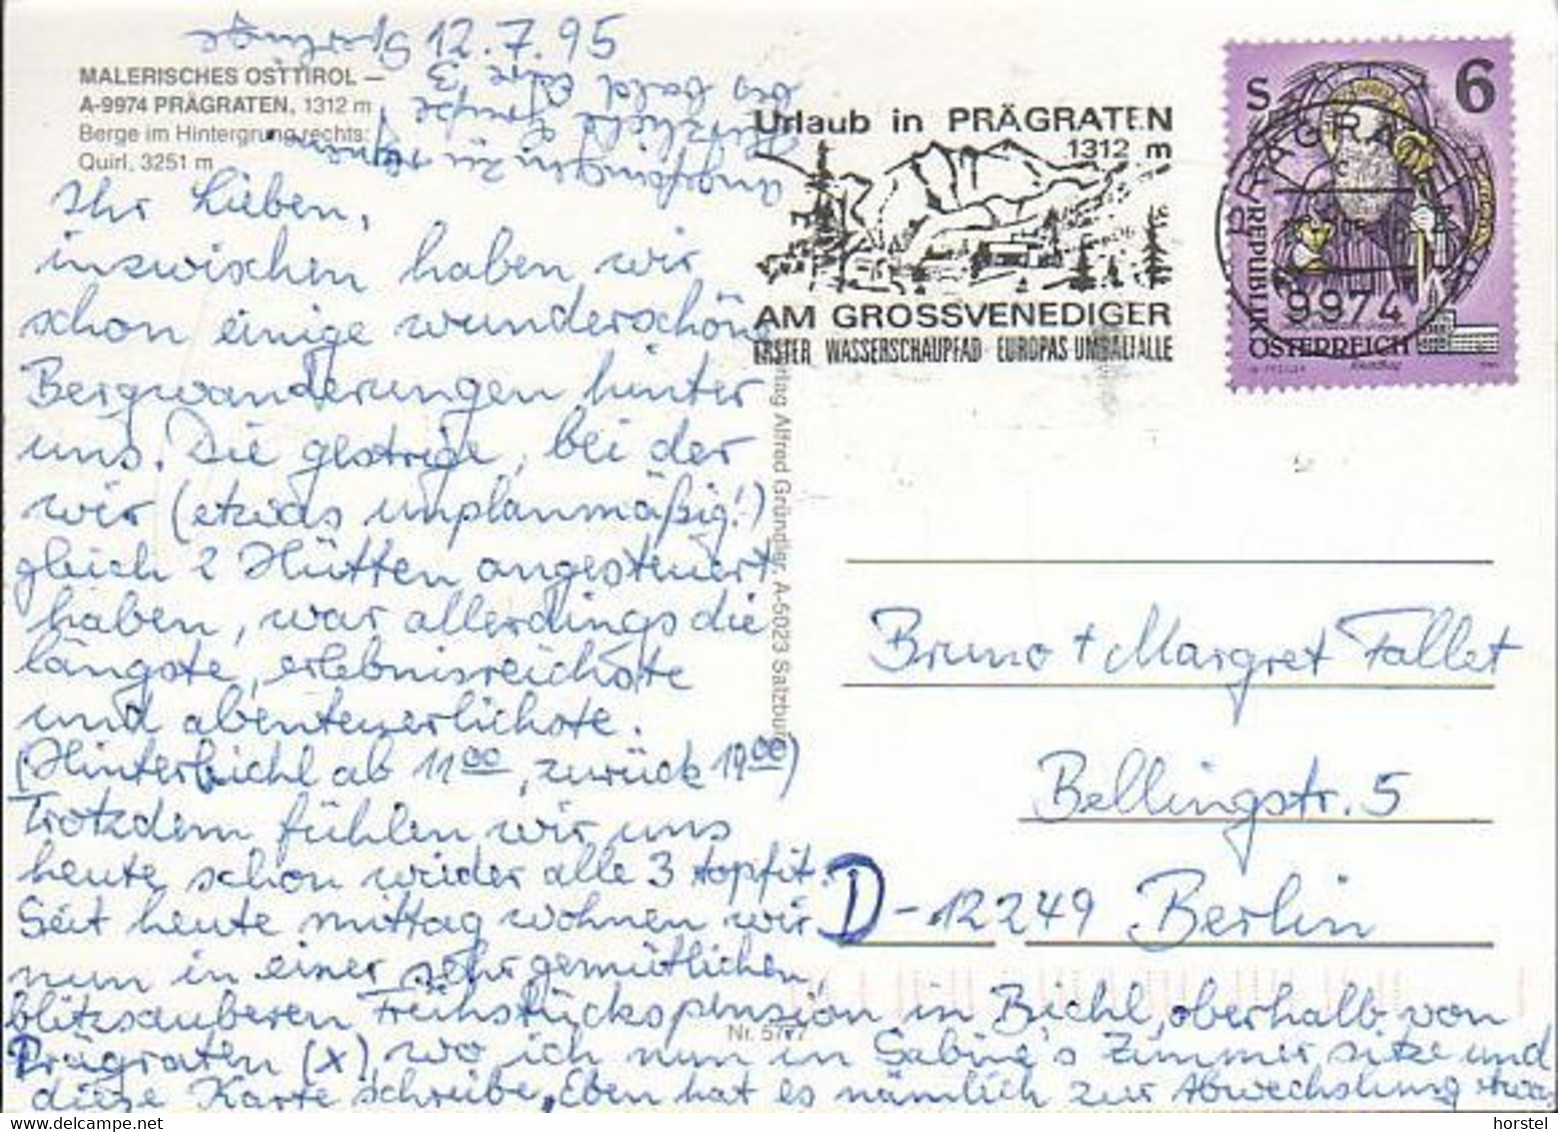 12.7.95
MALERISCHES OSTTIROL —
A-9974 PRÄGRATEN, 1312 m
Berge im Hintergrung rechts:
Quirl, 3251 m
Ihr Lieben,
inzwischen haben wir
schon einige wunderschöne
Bergwanderungen hinter
uns. Die gestrige, bei der
wir (etwas unplanmäßig!)
gleich 2 Hütten angesteuert
haben, war allerdings die
längste, erlebnisreichste
und abenteuerlichste.
(Hinterbichl ab 11 00, zurück 19 00)
Trotzdem fühlen wir uns
heute schon wieder alle 3 topfit.
Seit heute mittag wohnen wir
nun in einer sehr gemütlichen,
blitzsauberen Frühstückspension in Bichl, oberhalb von
Prägraten (x), wo ich nun in Sabine's Zimmer sitze und
diese Karte schreibe. Eben hat es nämlich zur Abwechslung etwas
angefangen zu
Herzliche Grüße
bis bald Eure 3
Sperlinge
Verlag Alfred Gründler, A-5023 Salzburg
Nr. 5777
Urlaub in PRÄGRATEN
1312 m
AM GROSSVENEDIGER
ERSTER WASSERSCHAUPFAD · EUROPAS UMBALFÄLLE
PRÄGRATEN
9974
S 6
REPUBLIK
ÖSTERREICH
Bruno + Margret Fallet
Bellingstr. 5
D-12249 Berlin
horstel